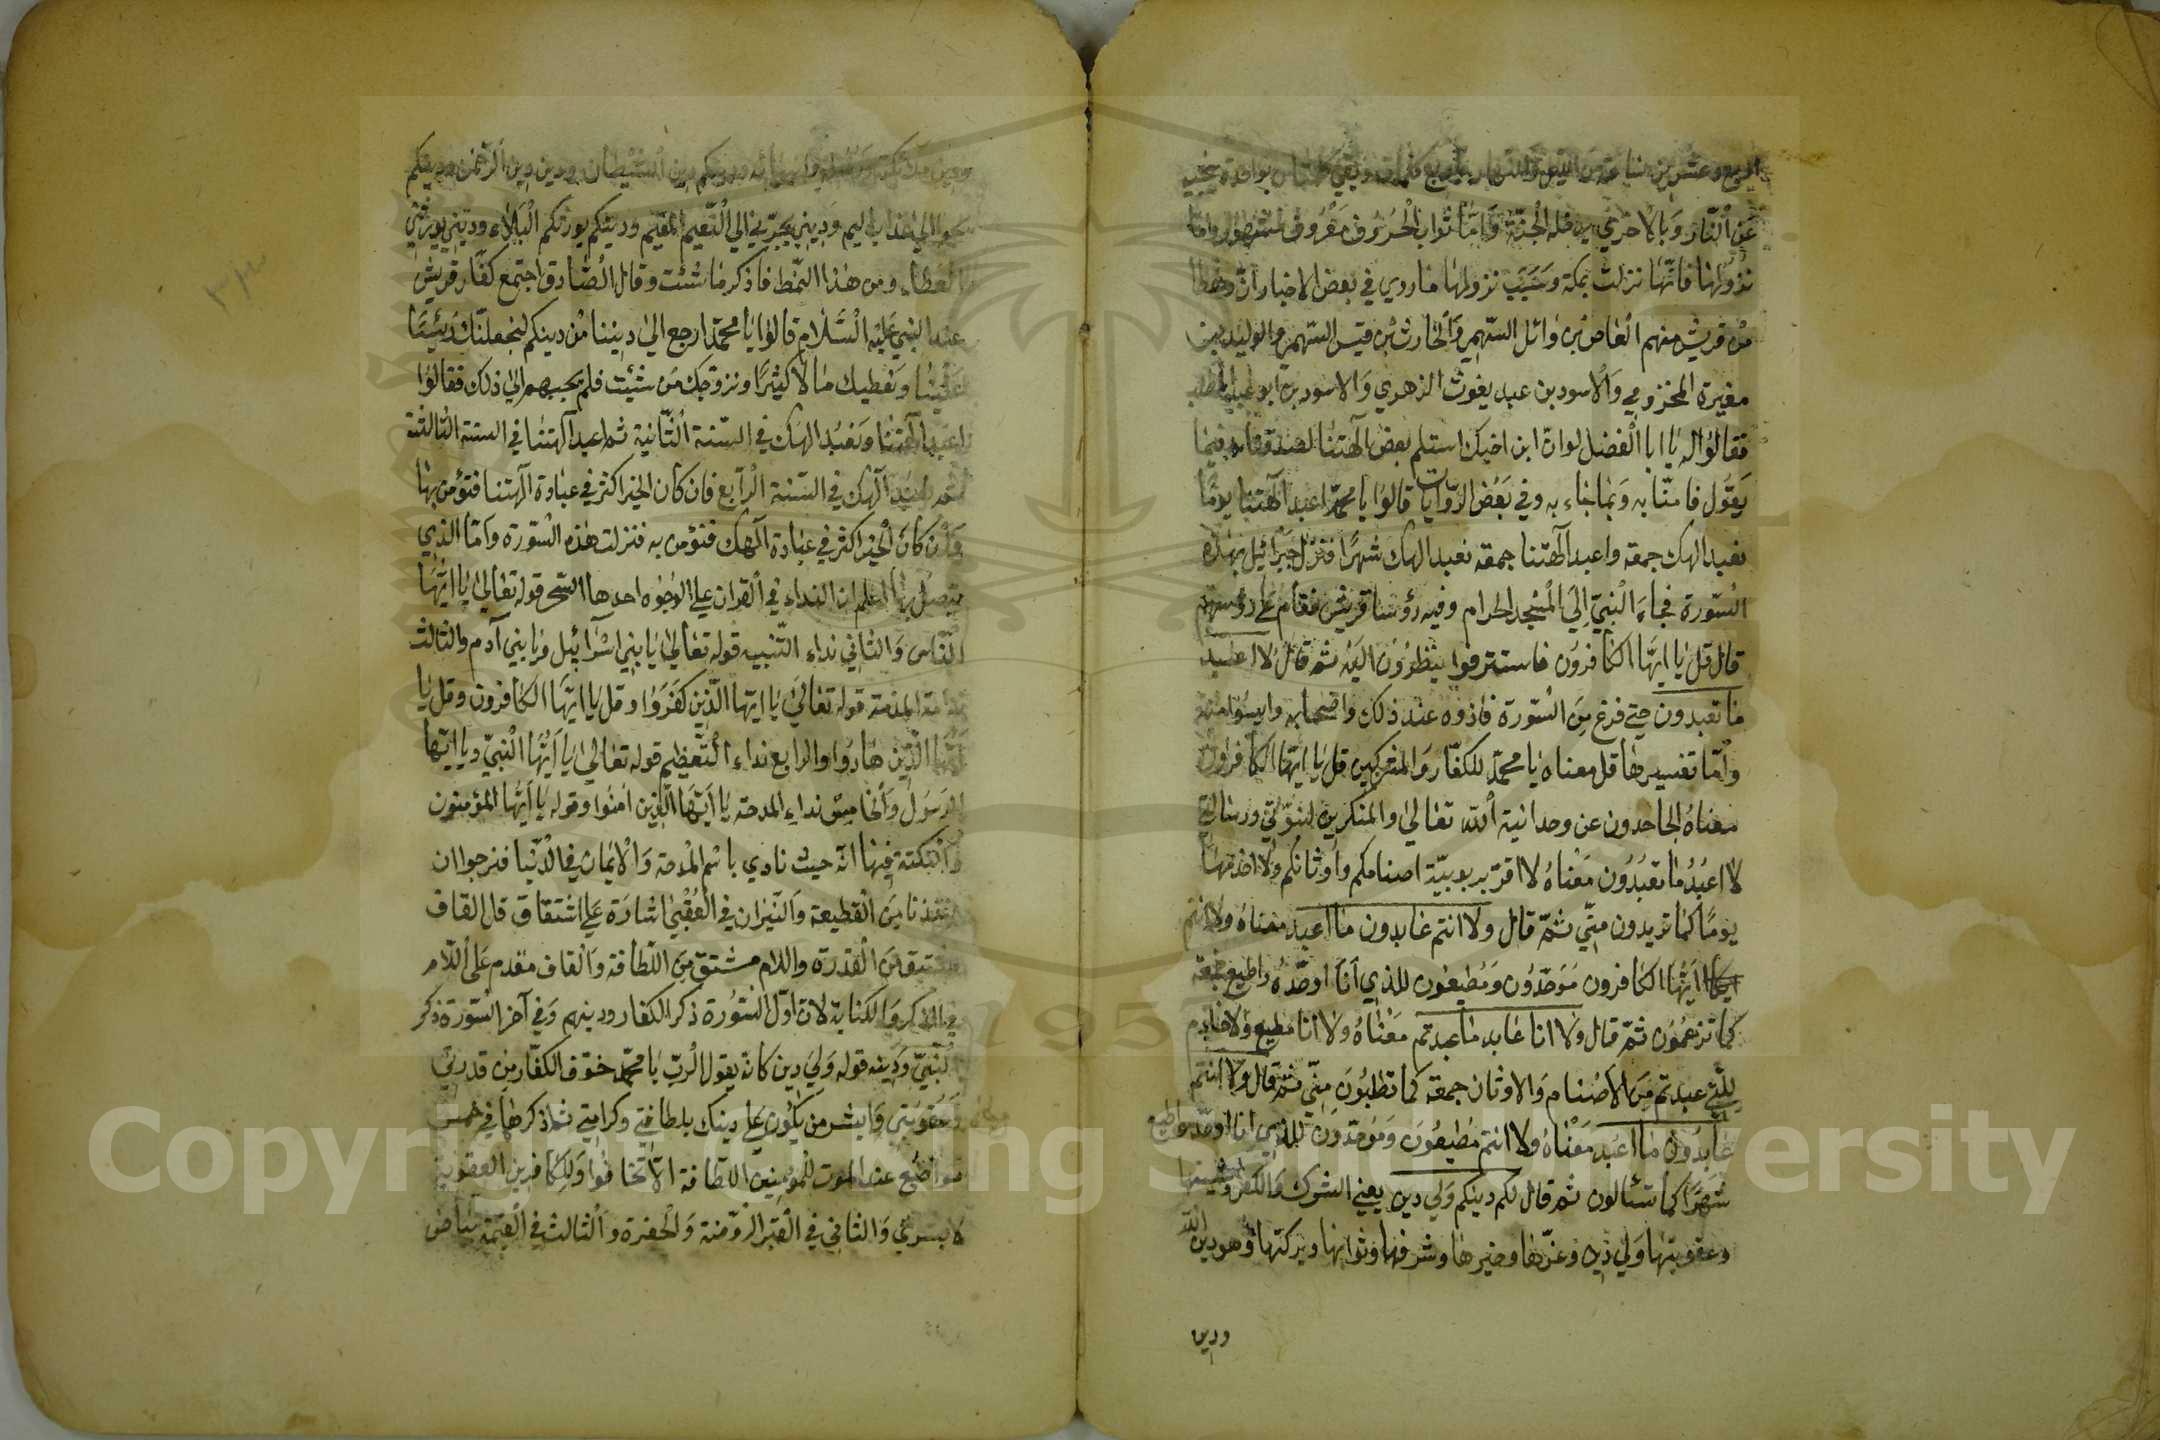 عن النار وبالاخرى يدخله الجنة واما ثواب الحروف معروف مشهور واما
نزولها فانها نزلت بمكة وسبب نزولها ما روي في بعض الاخبار ان رهطا
من قريش منهم العاص بن وائل السهمي والحارث بن قيس السهمي والوليد بن
مغيرة المخزومي والاسود بن عبد يغوث الزهري والاسود بن
فقالوا له يا ابا الفضل لو ان ابن اخيك استلم بعض آلهتنا لصدقناه فيما
يقول فامنا به وبما جاء به وفي بعض الروايات قالوا يا محمد اعبد آلهتنا يوما
نعبد الهك جمعة واعبد آلهتنا جمعة نعبد الهك شهرا فنزل جبرائيل بهذه
السورة فجاء النبي الى المسجد الحرام وفيه رؤسا قريش فقام على رؤسهم
قال قل يا ايها الكافرون فاستشرفوا ينظرون اليه ثم قال لا اعبد
ما تعبدون حتى فرغ من السورة فاذوه عند ذلك واصحابه وايسوا منه
واما تفسيرها قل معناه يا محمد للكفار والمشركين قل يا ايها الكافرون
معناه الجاحدون عن وحدانية الله تعالى والمنكرين لنبوتي ورسالتي
لا اعبد ما تعبدون معناه لا اقر بربوبية اصنامكم واوثانكم ولا اخدمها
يوما كما تريدون مني ثم قال ولا انتم عابدون ما اعبد معناه ولا انتم
ايها الكافرون موحدون ومطيعون للذي انا اوحده واطيع جمعة
كما تزعمون ثم قال ولا انا عابد ما عبدتم معناه ولا انا مطيع ولا خادم
للتي عبدتم من الاصنام والاوثان جمعة كما تطلبون مني ثم قال ولا انتم
عابدون ما اعبد معناه ولا انتم مطيعون وموحدون للذي انا اوحد واطيع
شهرا كما تسئالون ثم قال لكم دينكم ولي دين يعني الشرك والكفر
وعقوبتها ولي دين وعزها وخيرها وشرفها وثوابها وبركتها وهو دين الله
ودين
دين الشيطان ودين دين الرحمن ودينكم
الى عذاب اليم وديني يجرني الى النعيم المقيم ودينكم يورثكم البلاء وديني يورثني
العطاء ومن هذا النمط فاذكر ما شئت وقال الصادق اجتمع كفار قريش
عند النبي عليه السلام قالوا يا محمد ارجع الى ديننا من دينكم لنجعلنك رئيسا
علينا ونعطيك مالا كثيرا ونزوجك من شئت فلم يجبهم الى ذلك فقالوا
اعبد آلهتنا ونعبد الهك في السنة الثانية ثم اعبد آلهتنا في السنة الثالثة
ثم نعبد آلهك في السنة الرابع فان كان الخير اكثر في عبادة آلهتنا فتؤمن بها
وان كان الخير اكثر في عبادة آلهك فنؤمن به فنزلت هذه السورة واما الذي
يتصل بها اعلم ان النداء في القران على الوجوه احدها قوله تعالى يا ايها
الناس والثاني نداء التنبيه قوله تعالى يا بني اسرائيل ويا بني آدم والثالث
نداء المذمة قوله تعالى يا ايها الذين كفروا وقل يا ايها الكافرون وقل يا
ايها الذين هادوا والرابع نداء التعظيم قوله تعالى يا ايها النبي ويا ايها
الرسول والخامس نداء المدحة يا ايها الذين امنوا وقوله يا ايها المؤمنون
والنكتة فيها انه حيث نادي باسم المدحة والايمان في الدنيا فنرجوا ان
ينقذنا من القطيعة والنيران في العقبى اشارة على اشتقاق قل القاف
مشتق من القدرة واللام مشتق من اللطافة والقاف مقدم على اللام
في الذكر والكتابة لان اول السورة ذكر الكفار ودينهم وفي آخر السورة ذكر
النبي ودينه قوله ولي دين كانه يقول الرب يا محمد خوف الكفار من قدرتي
وعقوبتي وابشر من يكون على دينك بلطافتي وكرامتي ثم اذكرها في خمس
مواضع عند الموت للمؤمنين اللطافة الا تخافوا وللكافرين العقوبة
لا بشرى والثاني في القبر الروضة والحفرة والثالث في القيمة بياض
1957
Copyright © King Saud University